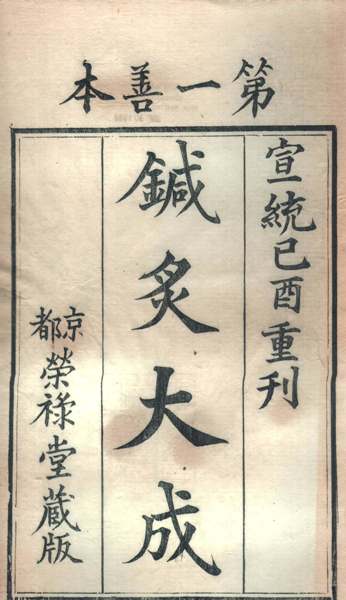 第一善本
宣統己酉重刊
鍼灸大成
京都
榮祿堂藏版